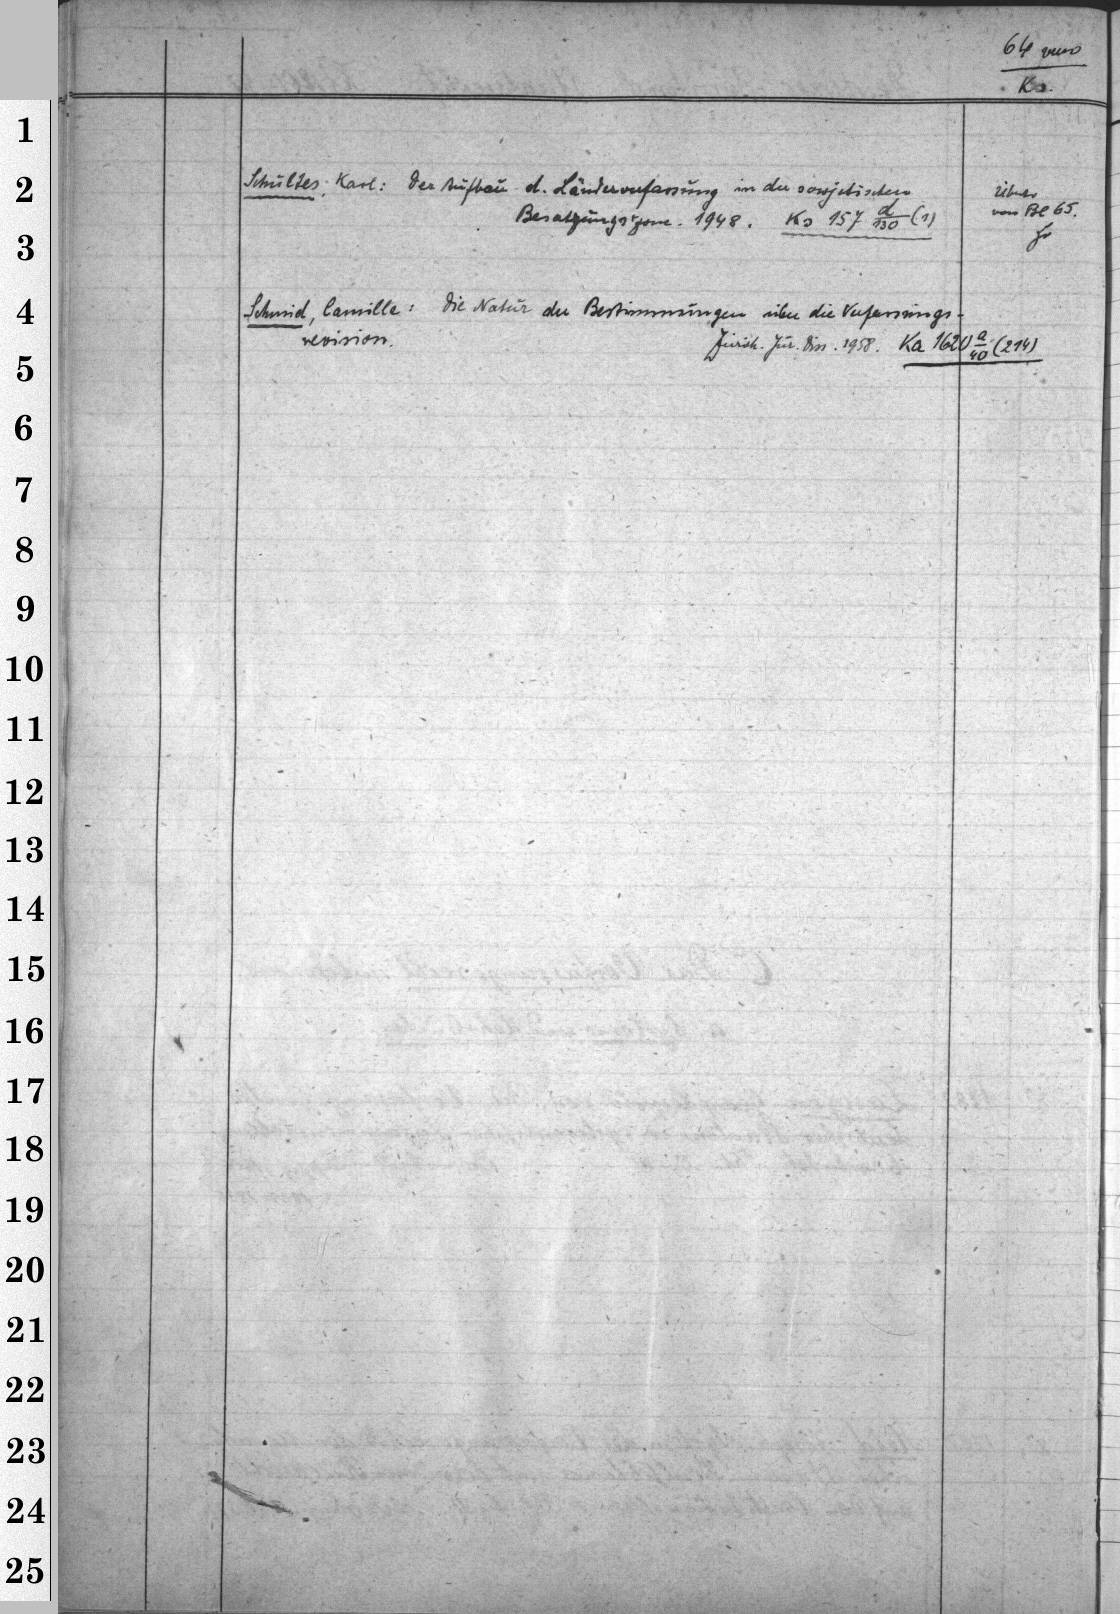 64 verso
Ka.
Schultes, Karl: Der Aufbau d. Länderverfassung in der sowjetischen
Besatzungszone. 1948. Ka 157 d/130 (1)
von Bl 65.
Schmid, Camille: Die Natur der Bestimmungen über die Verfassungs-
revision. Zürich. Jur. Diss. 1958. Ka 1620 a/40 (214)
1
2
3
4
5
6
7
8
9
10
11
12
13
14
15
16
17
18
19
20
21
22
23
24
25